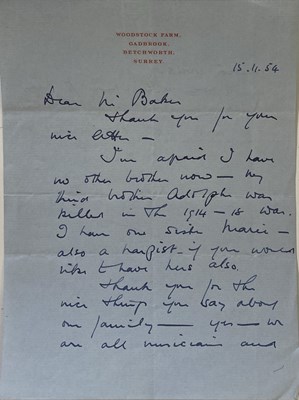 WOODSTOCK FARM,
GADBROOK,
BETCHWORTH,
SURREY.
15.11.54
Dear Mr Baker
Thank you for your
nice letter —
I'm afraid I have
no other brother now — my
third brother Adolphe was
killed in the 1914–18 war.
I have one sister Marie —
also a harpist — if you would
like to have hers also.
Thank you for the
nice things you say about
our family — yes — we
are all musicians and